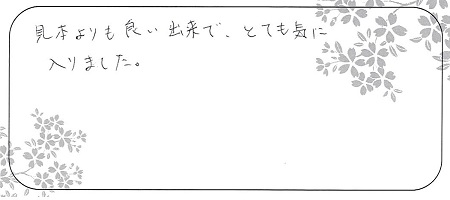 見本よりも良い出来で、とても気に
入りました。